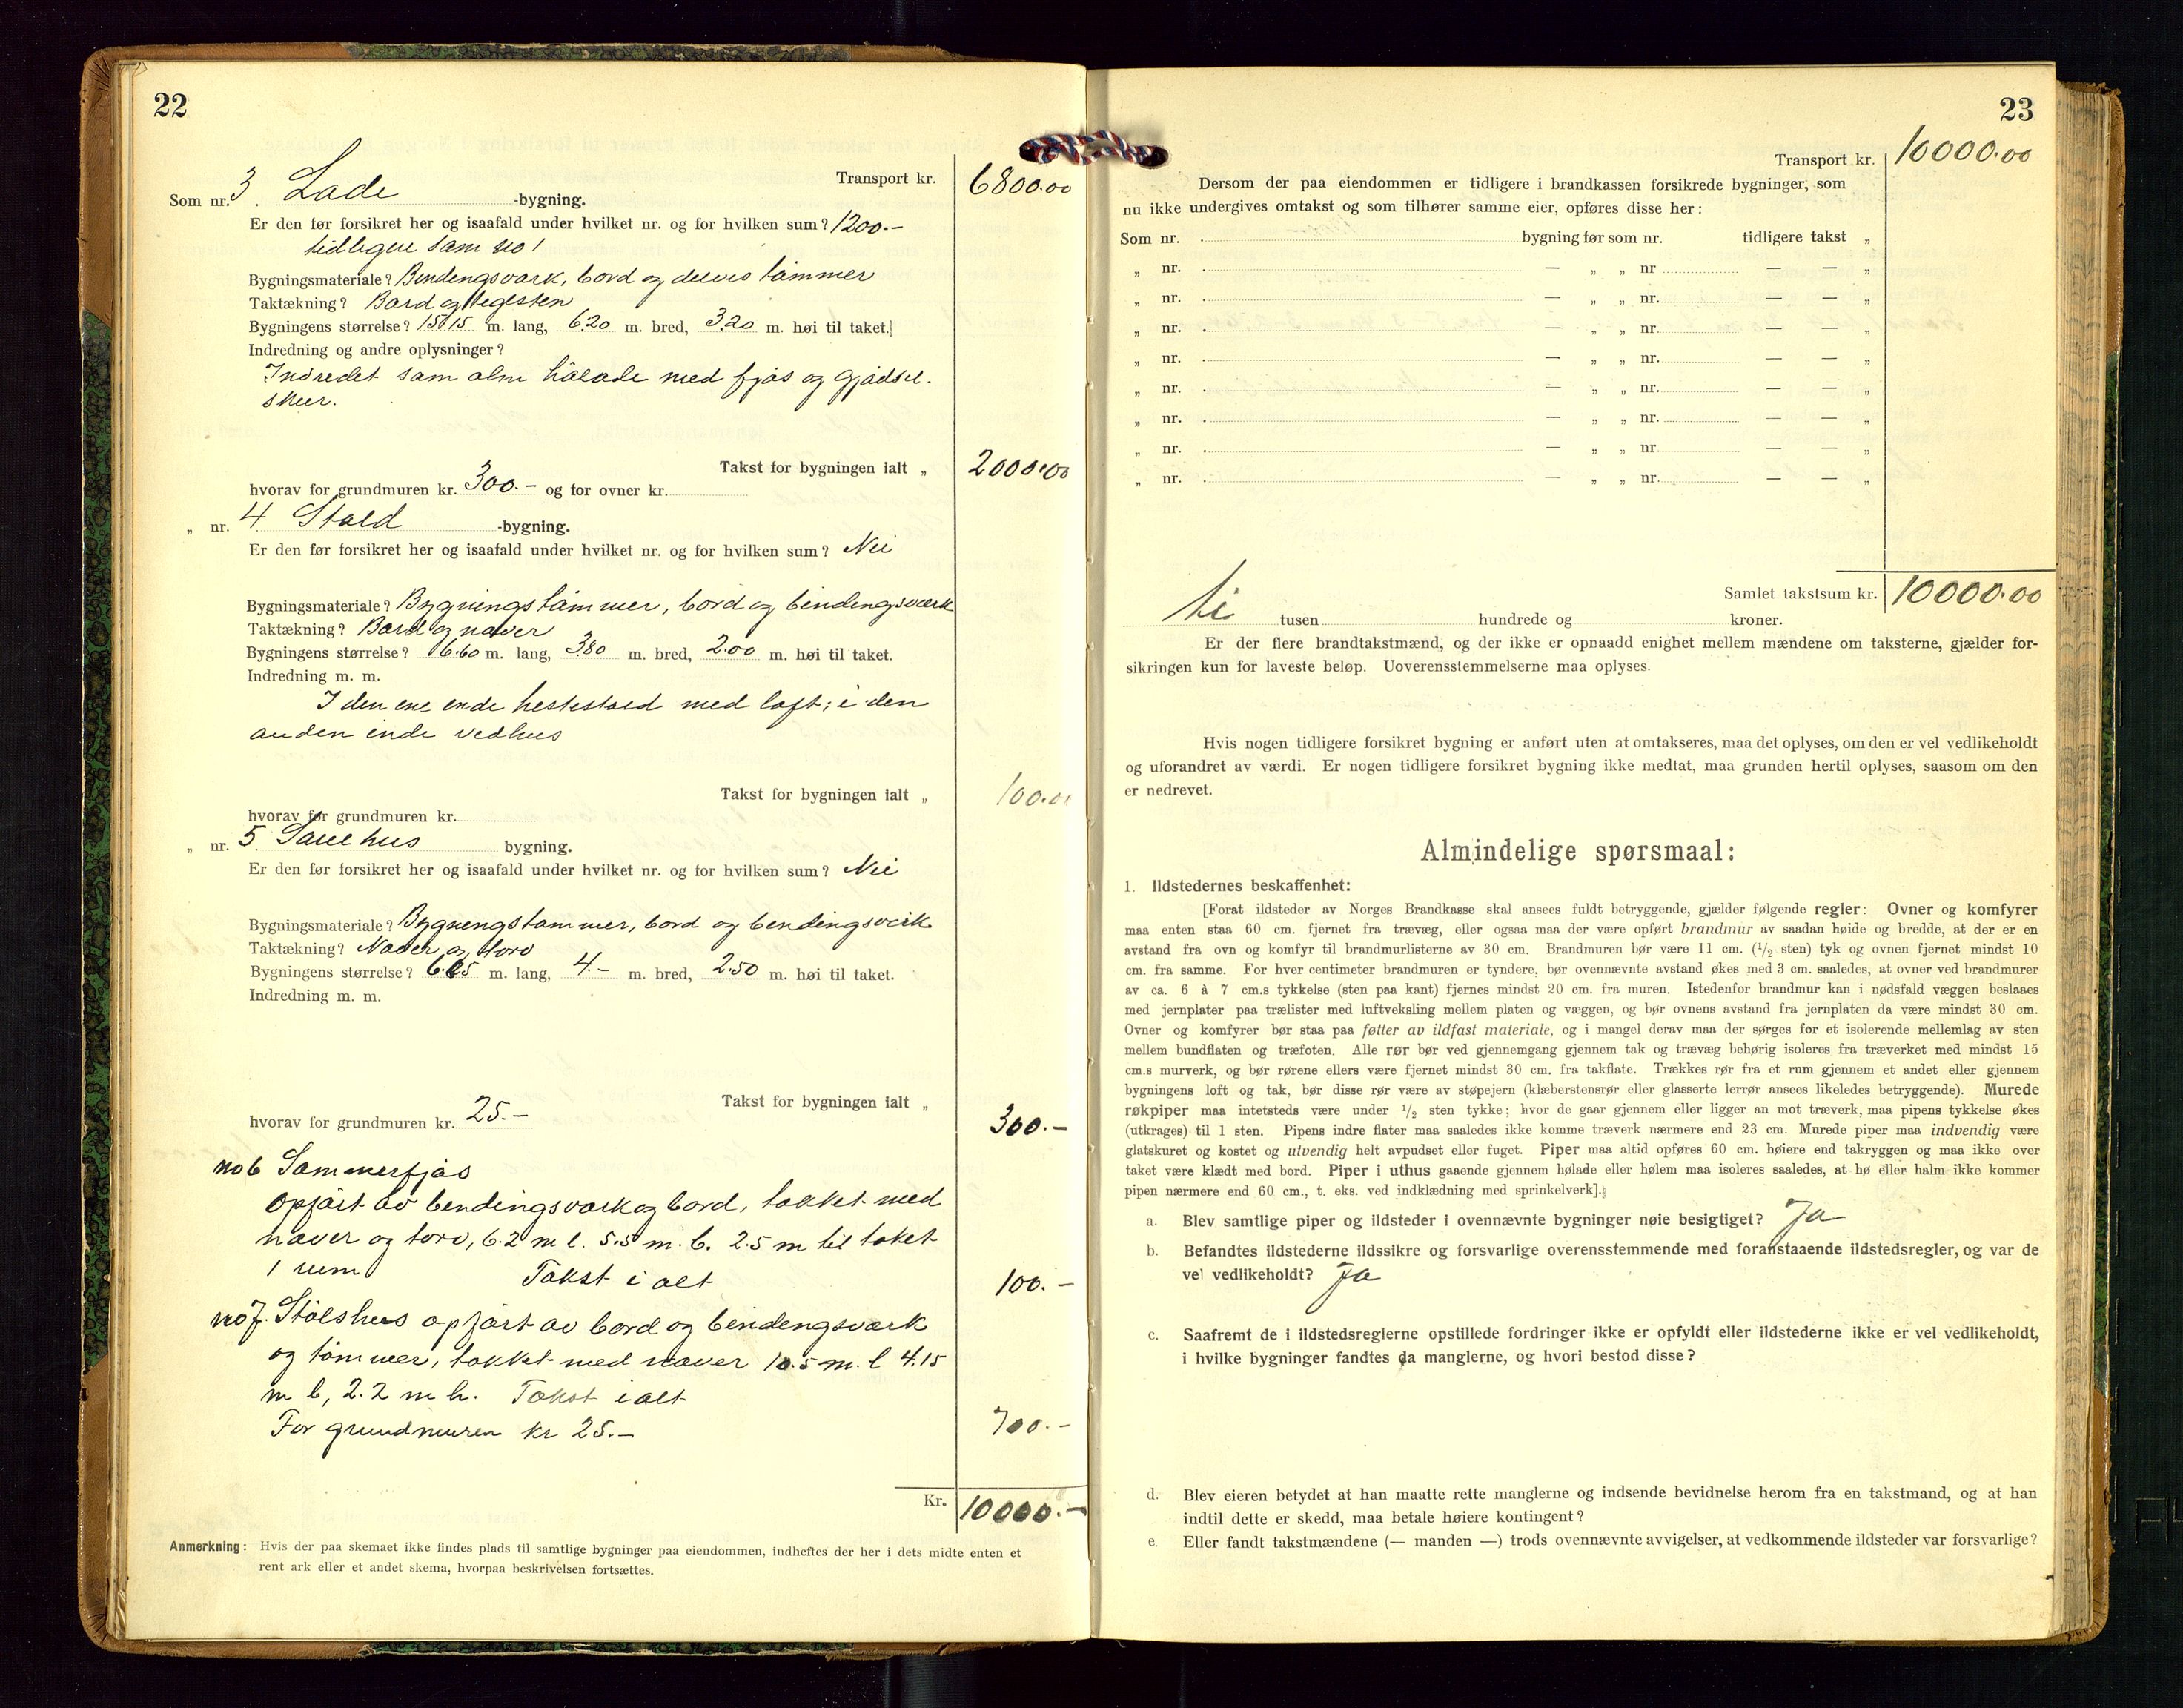 22
Transport kr. 6800.00
Som nr. 3. Lade -bygning.
Er den før forsikret her og isaafald under hvilket nr. og for hvilken sum? 1200.–
tidligere som no 1
Bygningsmateriale? Bendingsværk, bord og delvis tømmer
Taktækning? Bord og teglsten
Bygningens størrelse? 15.15 m. lang, 6.20 m. bred, 3.20 m. høi til taket.
Indredning og andre oplysninger?
Indredet som alm hølade med fjøs og gjødsel-
skur.
Takst for bygningen ialt „ 2000.00
hvorav for grundmuren kr. 300.– og for ovner kr.
„ nr. 4 Stald -bygning.
Er den før forsikret her og isaafald under hvilket nr. og for hvilken sum? Nei
Bygningsmateriale? Bygningstømmer, bord og bendingsværk
Taktækning? Bord og næver
Bygningens størrelse? 6.60 m. lang, 3.80 m. bred, 2.00 m. høi til taket.
Indredning m. m.
I den ene ende hestestald med loft; i den
anden ende vedhus
Takst for bygningen ialt „ 100.00
hvorav for grundmuren kr.
„ nr. 5. Sauehus bygning.
Er den før forsikret her og isaafald under hvilket nr. og for hvilken sum? Nei
Bygningsmateriale? Bygningstømmer, bord og bendingsverk
Taktækning? Næver og torv
Bygningens størrelse? m. lang, 4.– m. bred, 2.50 m. høi til taket.
Indredning m. m.
Takst for bygningen ialt „ 300.–
hvorav for grundmuren kr. 25.–
no 6 Sommerfjøs
opført av bendingsværk og bord, tækket med
næver og torv, 6.2 m l. 5.5 m. b. 2.5 m til taket
1 rum Takst i alt 100.–
no 7. Stølshus opført av bord og bendingsværk
og tømmer, tækket med næver 10.5 m. l 4.15
m b, 2.2 m h. Takst i alt
700.–
For grundmuren kr 25.–
Kr. 10000.–
Anmerkning: Hvis der paa skemaet ikke findes plads til samtlige bygninger paa eiendommen, indheftes der her i dets midte enten et
rent ark eller et andet skema, hvorpaa beskrivelsen fortsættes.
23
Transport kr. 10000.00
Dersom der paa eiendommen er tidligere i brandkassen forsikrede bygninger, som
nu ikke undergives omtakst og som tilhører samme eier, opføres disse her:
Som nr. . bygning før som nr. tidligere takst „
„ nr. . — „ „ nr — — „
„ nr. . — „ „ nr. — — „
„ nr. . — „ „ nr. — — „
„ nr. . — „ „ nr. — — „
„ nr. . — „ „ nr. — — „
„ nr. . — „ „ nr. — — „
„ nr. . — „ „ nr. — — „
„ nr. . — „ „ nr. — — „
Samlet takstsum kr. 10000.00
ti tusen hundrede og kroner.
Er der flere brandtakstmænd, og der ikke er opnaadd enighet mellem mændene om taksterne, gjælder for-
sikringen kun for laveste beløp. Uoverensstemmelserne maa oplyses.
Hvis nogen tidligere forsikret bygning er anført uten at omtakseres, maa det oplyses, om den er vel vedlikeholdt
og uforandret av værdi. Er nogen tidligere forsikret bygning ikke medtat, maa grunden hertil oplyses, saasom om den
er nedrevet.
Almindelige spørsmaal:
1. Ildstedernes beskaffenhet:
[Forat ildsteder av Norges Brandkasse skal ansees fuldt betryggende, gjælder følgende regler: Ovner og komfyrer
maa enten staa 60 cm. fjernet fra trævæg, eller ogsaa maa der være opført brandmur av saadan høide og bredde, at der er en
avstand fra ovn og komfyr til brandmurlisterne av 30 cm. Brandmuren bør være 11 cm. (1/2 sten) tyk og ovnen fjernet mindst 10
cm. fra samme. For hver centimeter brandmuren er tyndere, bør ovennævnte avstand økes med 3 cm. saaledes, at ovner ved brandmurer
av ca. 6 à 7 cm.s tykkelse (sten paa kant) fjernes mindst 20 cm. fra muren. Istedenfor brandmur kan i nødsfald væggen beslaaes
med jernplater paa trælister med luftveksling mellem platen og væggen, og bør ovnens avstand fra jernplaten da være mindst 30 cm.
Ovner og komfyrer bør staa paa føtter av ildfast materiale, og i mangel derav maa der sørges for et isolerende mellemlag av sten
mellem bundflaten og træfoten. Alle rør bør ved gjennemgang gjennem tak og trævæg behørig isoleres fra træverket med mindst 15
cm.s murverk, og bør rørene ellers være fjernet mindst 30 cm. fra takflate. Trækkes rør fra et rum gjennem et andet eller gjennem
bygningens loft og tak, bør disse rør være av støpejern (klæberstensrør eller glasserte lerrør ansees likeledes betryggende). Murede
røkpiper maa intetsteds være under 1/2 sten tykke; hvor de gaar gjennem eller ligger an mot træverk, maa pipens tykkelse økes
(utkrages) til 1 sten. Pipens indre flater maa saaledes ikke komme træverk nærmere end 23 cm. Murede piper maa indvendig være
glatskuret og kostet og utvendig helt avpudset eller fuget. Piper maa altid opføres 60 cm. høiere end takryggen og maa ikke over
taket være klædt med bord. Piper i uthus gaaende gjennem hølade eller hølem maa isoleres saaledes, at hø eller halm ikke kommer
pipen nærmere end 60 cm., t. eks. ved indklædning med sprinkelverk].
a. Blev samtlige piper og ildsteder i ovennævnte bygninger nøie besigtiget? Ja
b. Befandtes ildstederne ildssikre og forsvarlige overensstemmende med foranstaaende ildstedsregler, og var de
vel vedlikeholdt? Ja
c. Saafremt de i ildstedsreglerne opstillede fordringer ikke er opfyldt eller ildstederne ikke er vel vedlikeholdt,
i hvilke bygninger fandtes da manglerne, og hvori bestod disse?
d. Blev eieren betydet at han maatte rette manglerne og indsende bevidnelse herom fra en takstmand, og at han
indtil dette er skedd, maa betale høiere kontingent?
e. Eller fandt takstmændene (— manden —) trods ovennævnte avvigelser, at vedkommende ildsteder var forsvarlige?